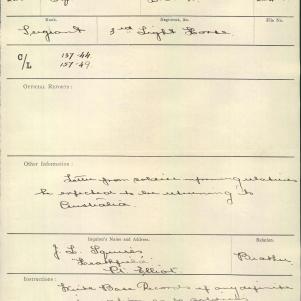 Rank.
Regiment, &c.
File No.
Sergeant
3rd Light Horse
C/L
157.44
157.49
OFFICIAL REPORTS:
Other Information:
Letter from soldier informing relatives
he expected to be returning to
Australia.
Inquirer's Name and Address.
Relation.
J. L. Squires
Pt Elliot
Brother
Instructions:
Write Base Records if any definite